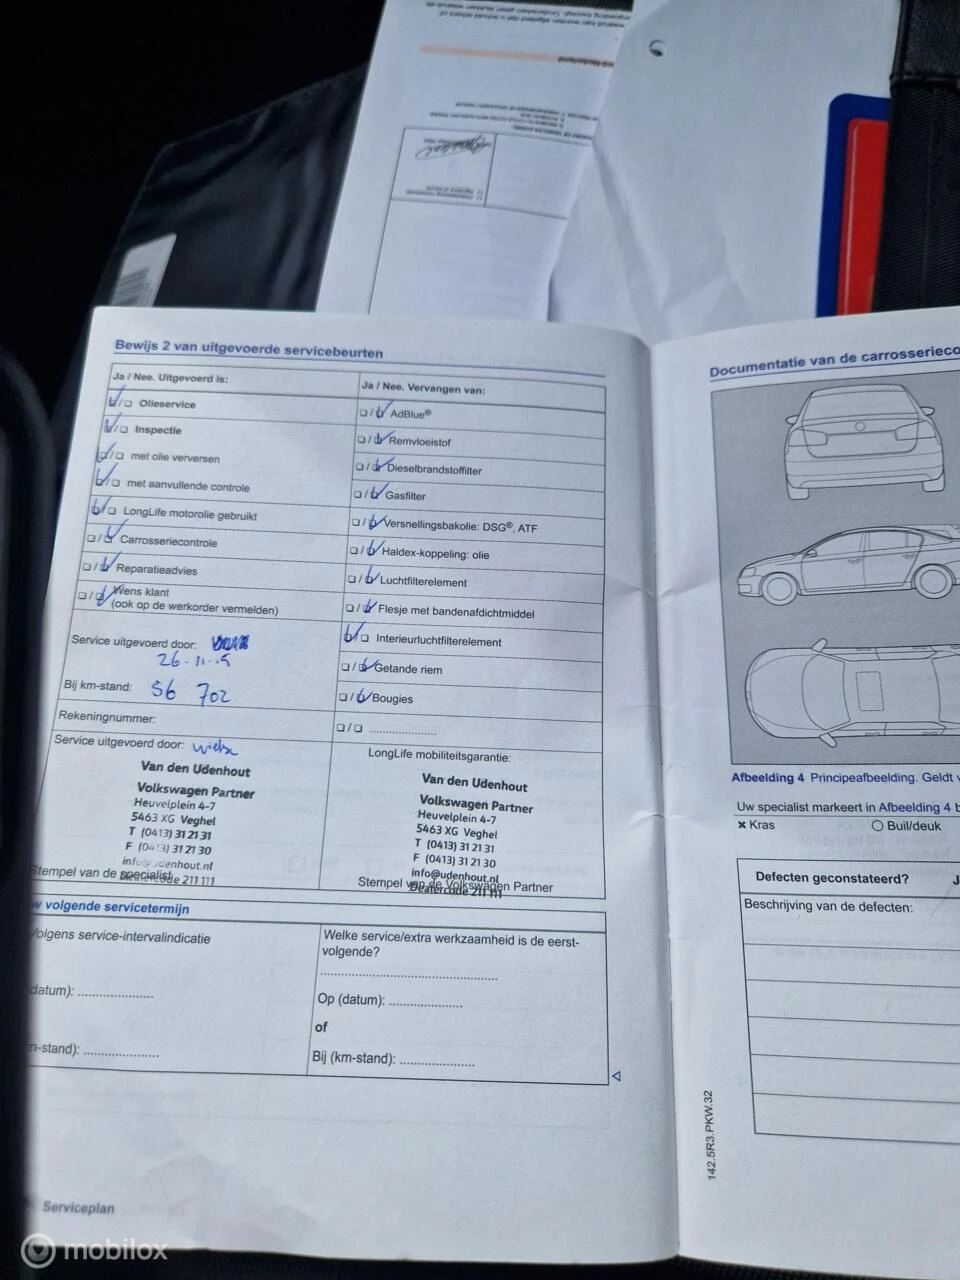 Bewijs 2 van uitgevoerde servicebeurten
Ja / Nee. Uitgevoerd is:
Olieservice
Inspectie
met olie verversen
met aanvullende controle
LongLife motorolie gebruikt
Carrosseriecontrole
Reparatieadvies
Wens klant
(ook op de werkorder vermelden)
Service uitgevoerd door:
Bij km-stand: 56 702
Rekeningnummer:
Service uitgevoerd door:
Van den Udenhout
Volkswagen Partner
Heuvelplein 4-7
5463 XG Veghel
T (0413) 31 21 31
F (0413) 31 21 30
info@udenhout.nl
Dealercode 211 111
Stempel van de specialist
Ja / Nee. Vervangen van:
AdBlue®
Remvloeistof
Dieselbrandstoffilter
Gasfilter
Versnellingsbakolie: DSG®, ATF
Haldex-koppeling: olie
Luchtfilterelement
Flesje met bandenafdichtmiddel
Interieurluchtfilterelement
Getande riem
Bougies
LongLife mobiliteitsgarantie:
Van den Udenhout
Volkswagen Partner
Heuvelplein 4-7
5463 XG Veghel
T (0413) 31 21 31
F (0413) 31 21 30
info@udenhout.nl
Dealercode 211 111
Stempel van de Volkswagen Partner
w volgende servicetermijn
Volgens service-intervalindicatie
datum): ....................
m-stand): ....................
Welke service/extra werkzaamheid is de eerst-
volgende?
Op (datum): ....................
of
Bij (km-stand): ....................
Serviceplan
Documentatie van de carrosserieco
Afbeelding 4 Principeafbeelding. Geldt v
Uw specialist markeert in Afbeelding 4 b
× Kras
Buil/deuk
Defecten geconstateerd? J
Beschrijving van de defecten:
142.5R3.PKW.32
mobilox